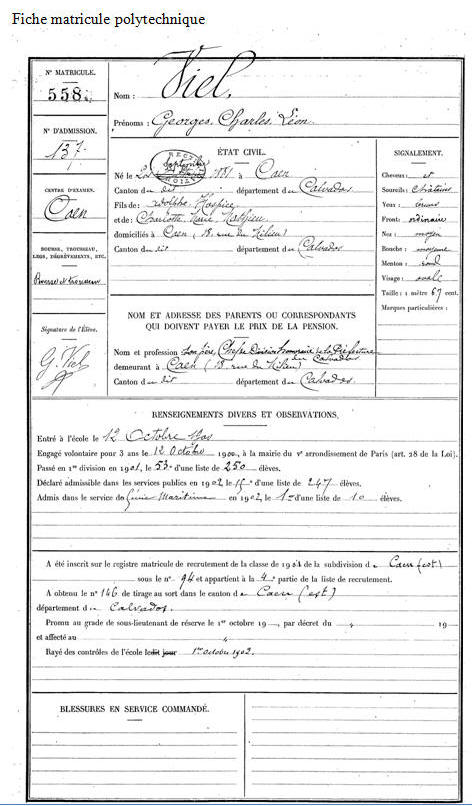 Fiche matricule polytechnique
N° MATRICULE.
558.
N° D'ADMISSION.
137.
CENTRE D'EXAMEN.
Caen
BOURSE, TROUSSEAU, LEGS, DÉGRÈVEMENTS, ETC.
Bourse et trousseau
Signature de l'Élève.
G. Viel
Nom : Viel,
Prénoms : Georges, Charles, Léon.
ÉTAT CIVIL.
Né le 1881 à Caen
Canton du dit département du Calvados
Fils de : Adolphe, Hospice,
et de : Charlotte Marie
domiciliés à Caen (18, rue du Milieu)
Canton du dit département du Calvados
SIGNALEMENT.
Cheveux : et
Sourcils : châtains
Yeux :
Front : ordinaire
Nez : moyen
Bouche : moyenne
Menton : rond
Visage : ovale
Taille : 1 mètre 67 cent.
Marques particulières :
NOM ET ADRESSE DES PARENTS OU CORRESPONDANTS
QUI DOIVENT PAYER LE PRIX DE LA PENSION.
Nom et profession Son père, Chef de Division à la Préfecture
du Calvados
demeurant à Caen (18, rue du Milieu)
Canton du dit département du Calvados.
RENSEIGNEMENTS DIVERS ET OBSERVATIONS.
Entré à l'école le 12 Octobre 1900
Engagé volontaire pour 3 ans le 12 Octobre 1900, à la mairie du Ve arrondissement de Paris (art. 28 de la Loi).
Passé en 1re division en 1901, le 53e d'une liste de 250 élèves.
Déclaré admissible dans les services publics en 1902 le 15e d'une liste de 247 élèves.
Admis dans le service de Génie Maritime en 1902, le 1er d'une liste de 10 élèves.
A été inscrit sur le registre matricule de recrutement de la classe de 1901 de la subdivision de Caen (est)
sous le n° 94 et appartient à la 4e partie de la liste de recrutement.
A obtenu le n° 146 de tirage au sort dans le canton de Caen (est)
département du Calvados.
Promu au grade de sous-lieutenant de réserve le 1er octobre 19 , par décret du 19
et affecté au
Rayé des contrôles de l'école ledit jour 1er octobre 1902.
BLESSURES EN SERVICE COMMANDÉ.